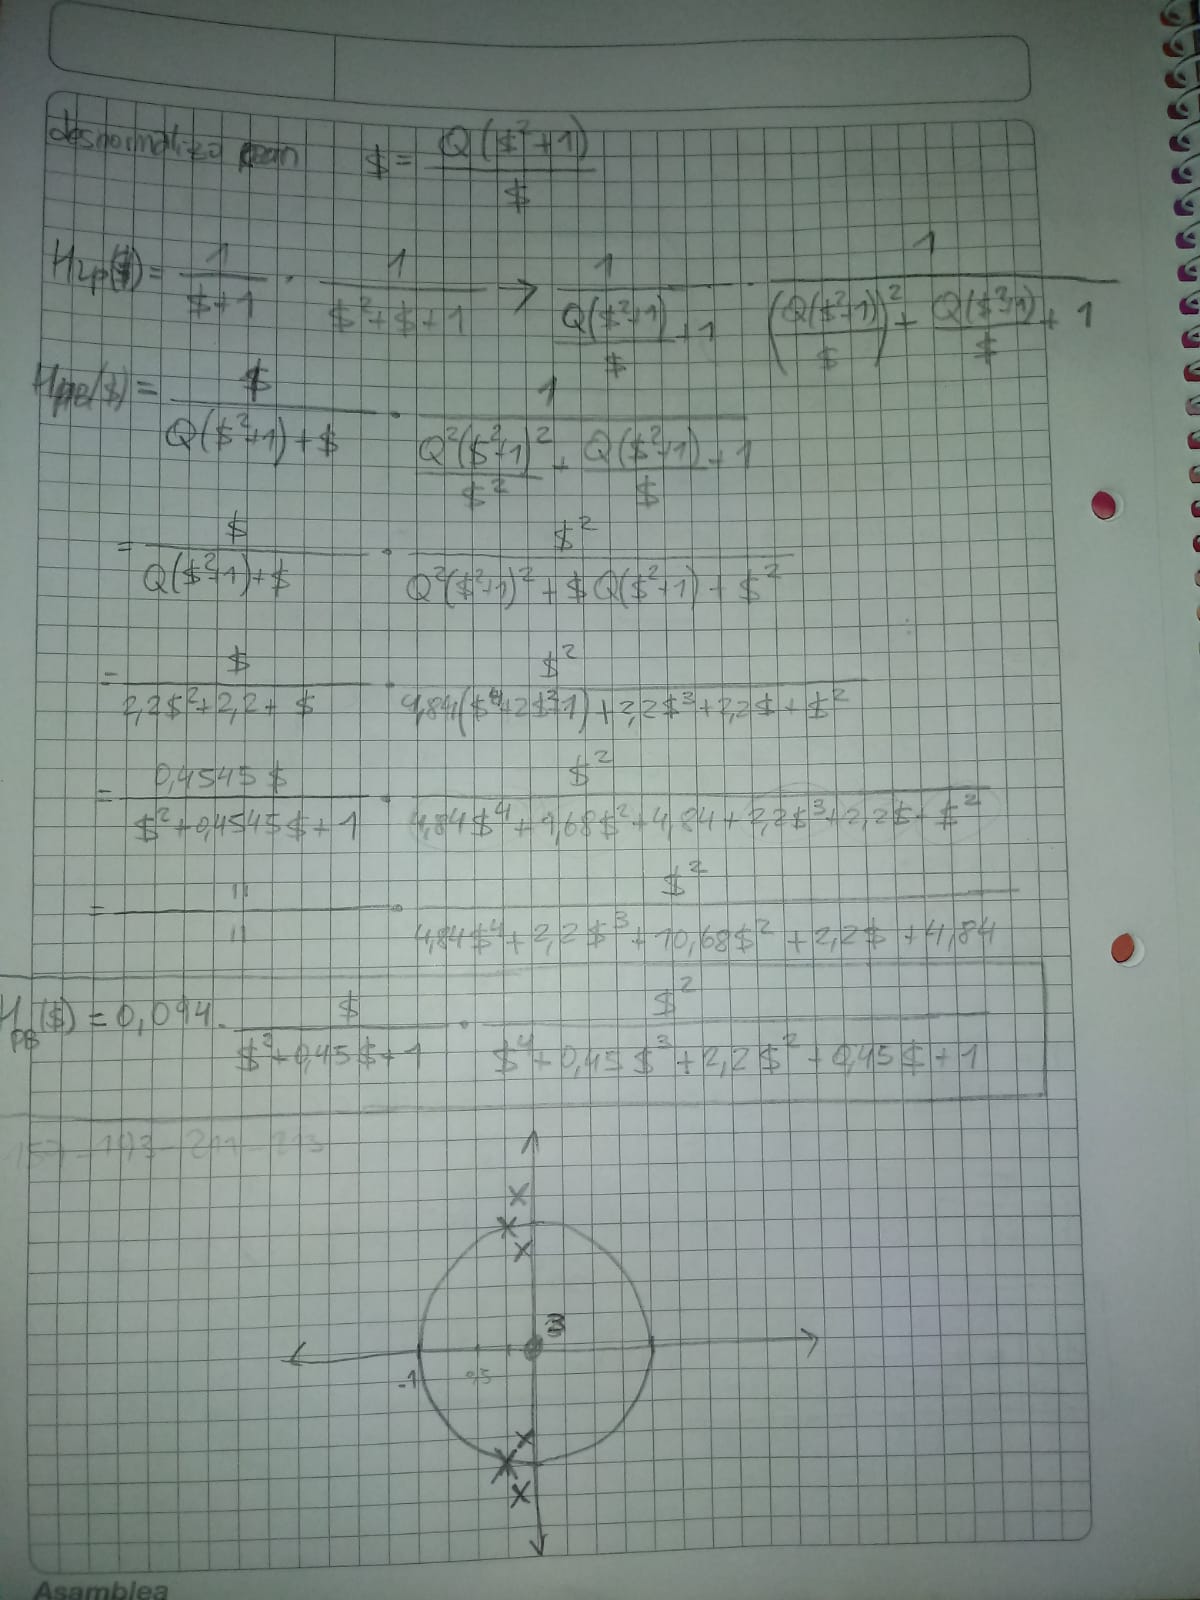 desnormalizo con $ = Q($²+1) / $
H_LP($) = 1 / ($+1) · 1 / ($²+$+1) → 1 / (Q($²+1)/$ + 1) · 1 / ((Q($²+1)/$)² + Q($²+1)/$ + 1)
H_PB($) = $ / (Q($²+1)+$) · 1 / (Q²($²+1)²/$² + Q($²+1)/$ + 1)
= $ / (Q($²+1)+$) · $² / (Q²($²+1)² + $ Q($²+1) + $²)
= $ / (2,2$²+2,2+$) · $² / (4,84($⁴+2$²+1)+2,2$³+2,2$+$²)
= 0,4545$ / ($²+0,4545$+1) · $² / (4,84$⁴+9,68$²+4,84+2,2$³+2,2$+$²)
= " / " · $² / (4,84$⁴+2,2$³+10,68$²+2,2$+4,84)
H_PB($) = 0,094 · $ / ($²+0,45$+1) · $² / ($⁴+0,45$³+2,2$²+0,45$+1)
3
-1
0,5
Asamblea